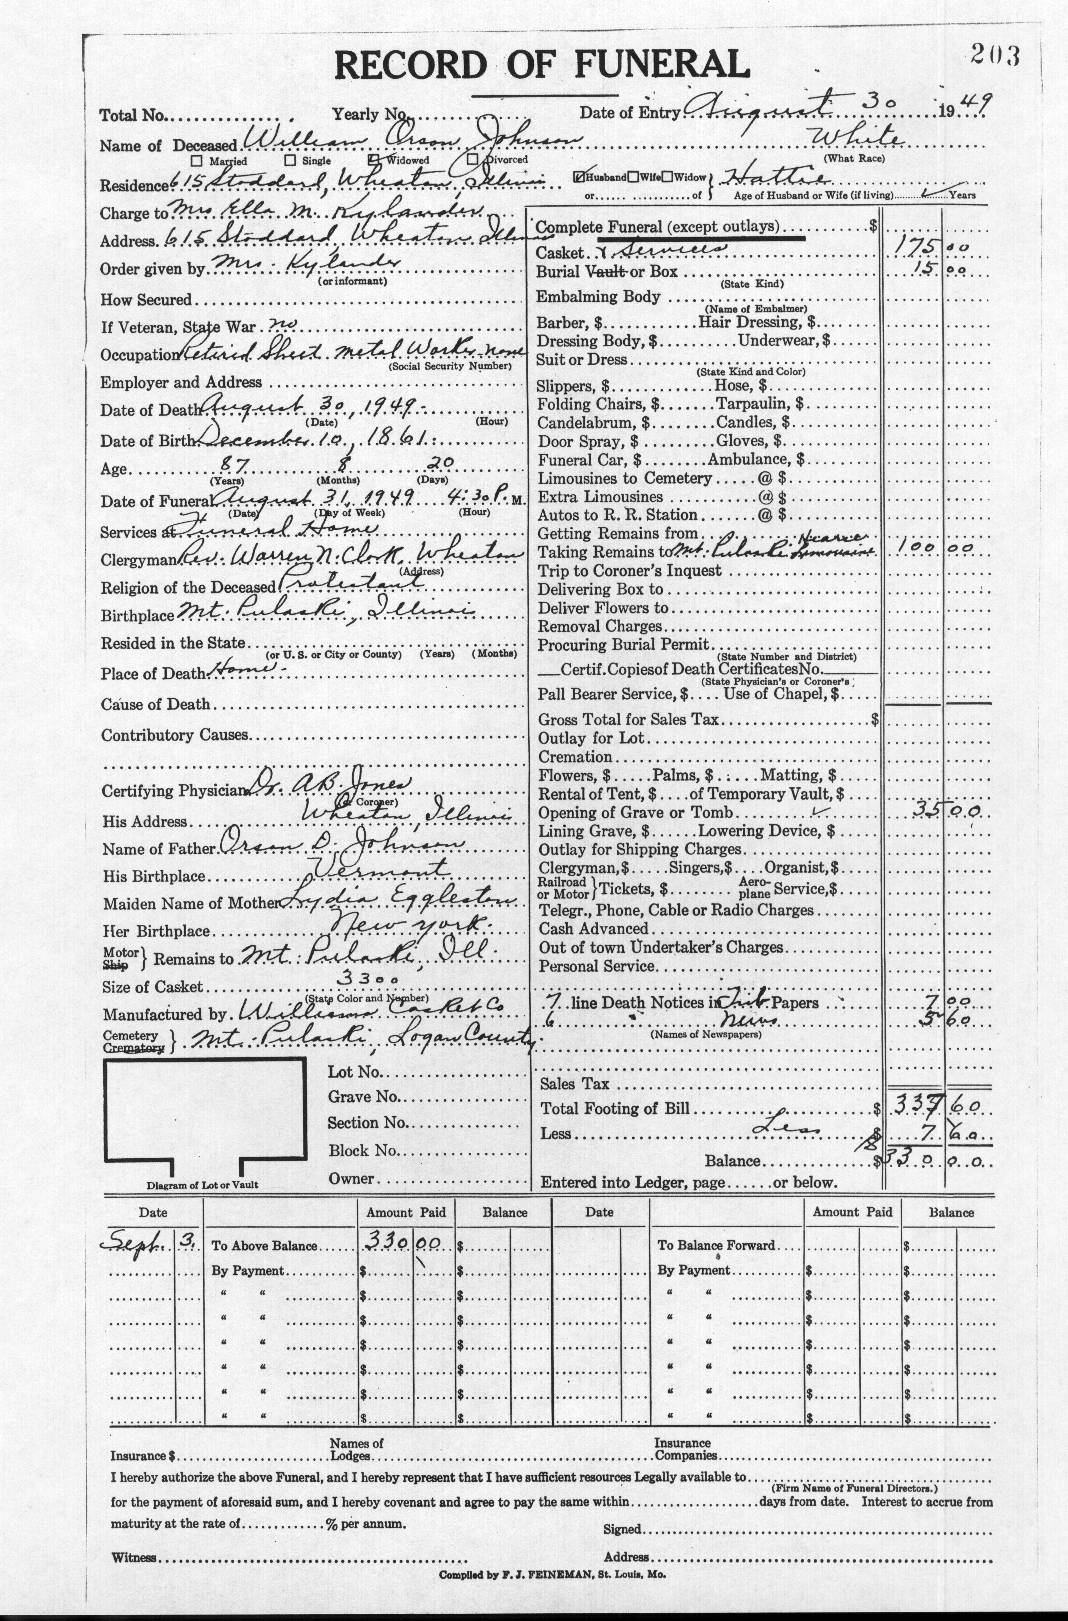 203
RECORD OF FUNERAL
Total No. Yearly No. Date of Entry August 30 1949
Name of Deceased William Orson Johnson White
Married Single Widowed Divorced (What Race)
Residence 615 Stoddard, Wheaton, Illinois Husband Wife Widow } Hattie
or of Age of Husband or Wife (if living) Years
Charge to Mrs Ella M. Kylander
Address. 615 Stoddard, Wheaton, Illinois
Order given by Mrs. Kylander
(or informant)
How Secured
If Veteran, State War no
Occupation Retired Sheet metal Worker none
(Social Security Number)
Employer and Address
Date of Death August 30, 1949
(Date) (Hour)
Date of Birth December 10, 1861
Age 87 8 20
(Years) (Months) (Days)
Date of Funeral August 31, 1949 4:30 P. M.
(Date) (Day of Week) (Hour)
Services at Funeral Home
Clergyman Rev. Warren N. Clark, Wheaton
(Address)
Religion of the Deceased Protestant
Birthplace Mt. Pulaski, Illinois
Resided in the State
(or U. S. or City or County) (Years) (Months)
Place of Death Home
Cause of Death
Contributory Causes
Certifying Physician Dr. A B. Jones
(or Coroner)
His Address Wheaton, Illinois
Name of Father Orson D. Johnson
His Birthplace Vermont
Maiden Name of Mother Lydia Eggleston
Her Birthplace New York.
Motor Ship } Remains to Mt. Pulaski, Ill.
Size of Casket 3300
(State Color and Number)
Manufactured by Williams Casket Co
Cemetery Crematory } Mt. Pulaski, Logan County.
Lot No.
Grave No.
Section No.
Block No.
Owner
Diagram of Lot or Vault
Complete Funeral (except outlays) $
Casket & Services 175 00
Burial Vault or Box 15 00
(State Kind)
Embalming Body
(Name of Embalmer)
Barber, $ Hair Dressing, $
Dressing Body, $ Underwear, $
Suit or Dress
(State Kind and Color)
Slippers, $ Hose, $
Folding Chairs, $ Tarpaulin, $
Candelabrum, $ Candles, $
Door Spray, $ Gloves, $
Funeral Car, $ Ambulance, $
Limousines to Cemetery @ $
Extra Limousines @ $
Autos to R. R. Station @ $
Getting Remains from Hearse
Taking Remains to Mt. Pulaski Limousine 100 00
Trip to Coroner's Inquest
Delivering Box to
Deliver Flowers to
Removal Charges
Procuring Burial Permit
(State Number and District)
Certif. Copies of Death Certificates No.
(State Physician's or Coroner's)
Pall Bearer Service, $ Use of Chapel, $
Gross Total for Sales Tax $
Outlay for Lot
Cremation
Flowers, $ Palms, $ Matting, $
Rental of Tent, $ of Temporary Vault, $
Opening of Grave or Tomb ✓ 35 00
Lining Grave, $ Lowering Device, $
Outlay for Shipping Charges
Clergyman, $ Singers, $ Organist, $
Railroad or Motor } Tickets, $ Aeroplane Service, $
Telegr., Phone, Cable or Radio Charges
Cash Advanced
Out of town Undertaker's Charges
Personal Service
7 line Death Notices in Trib Papers 7 00
6 " News 5 60
(Names of Newspapers)
Sales Tax
Total Footing of Bill $ 337 60
Less Less $ 7 60
Balance $ 330 00
Entered into Ledger, page or below.
Date Amount Paid Balance Date Amount Paid Balance
Sept. 3. To Above Balance 330 00 $ To Balance Forward $
By Payment $ $ By Payment $ $
" " $ $ " " $ $
" " $ $ " " $ $
" " $ $ " " $ $
" " $ $ " " $ $
" " $ $ " " $ $
" " $ $ " " $ $
Insurance $ Names of Lodges Insurance Companies
I hereby authorize the above Funeral, and I hereby represent that I have sufficient resources Legally available to
(Firm Name of Funeral Directors.)
for the payment of aforesaid sum, and I hereby covenant and agree to pay the same within days from date. Interest to accrue from
maturity at the rate of % per annum.
Signed
Witness Address
Compiled by F. J. FEINEMAN, St. Louis, Mo.